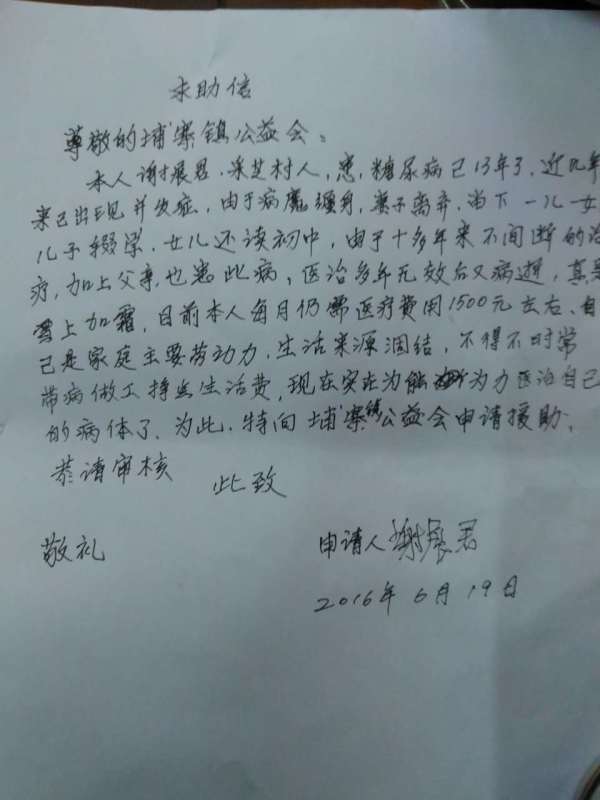 求助信
尊敬的埔寨镇公益会。
本人谢展君.采芝村人,患,糖尿病已13年了,近几年
来已出现并发症,由于病魔缠身,妻子离弃.当下一儿一女
儿子辍学.女儿还读初中,由于十多年来不间断的治
疗,加上父亲也患此病、医治多年无效后又病逝,真是
雪上加霜,目前本人每月仍需医疗费用1500元左右、自
己是家庭主要劳动力,生活来源涸结,不得不时常
带病做工挣点生活费,现在实在为能为力医治自己
的病体了.为此.特向埔寨镇公益会申请援助,
恭请审核
此致
敬礼
申请人谢展君
2016年6月19日